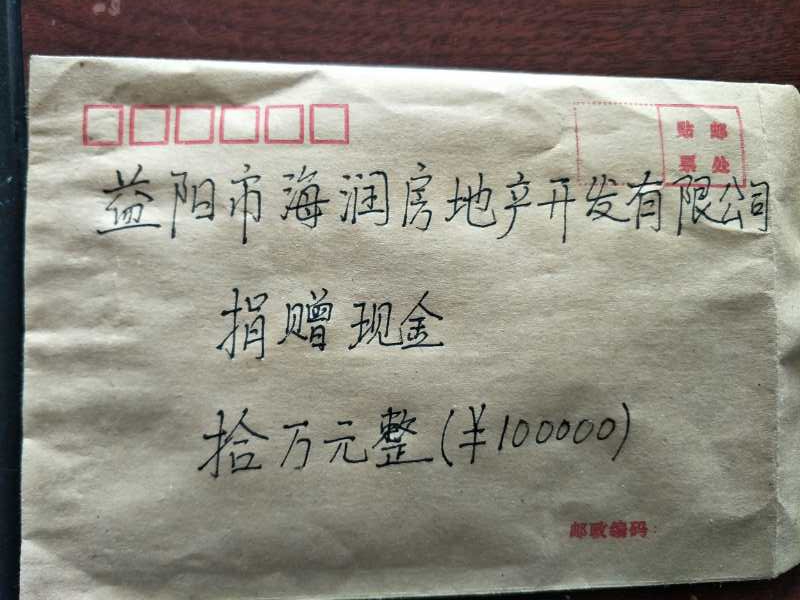 贴 邮
票 处
益阳市海润房地产开发有限公司
捐赠现金
拾万元整(￥100000)
邮政编码: